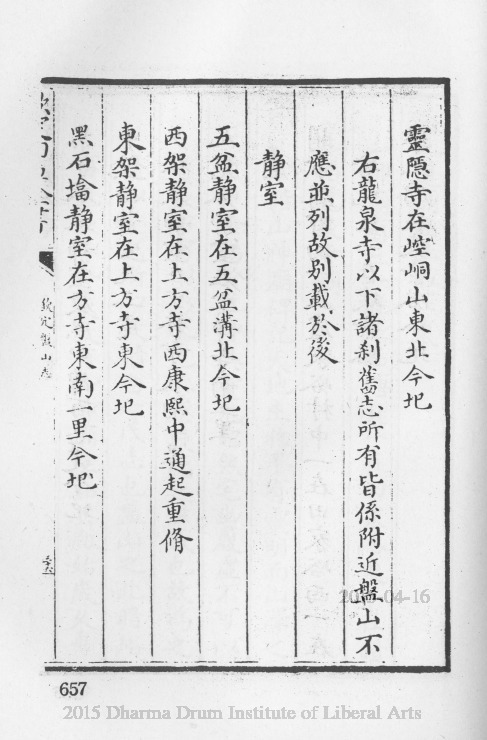 靈隱寺在崆峒山東北今圯
右龍泉寺以下諸刹舊志所有皆係附近盤山不
應並列故別載於後
静室
五盆静室在五盆溝北今圯
西架静室在上方寺西康熙中通起重脩
東架静室在上方寺東今圯
黑石墖静室在方寺東南一里今圯
欽定盤山志
657
2015-04-16
2015 Dharma Drum Institute of Liberal Arts